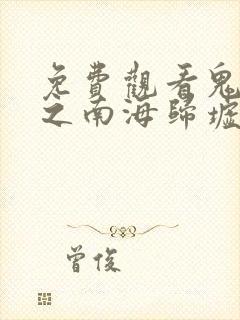 免費觀看鬼
之南海歸墟
曾俊